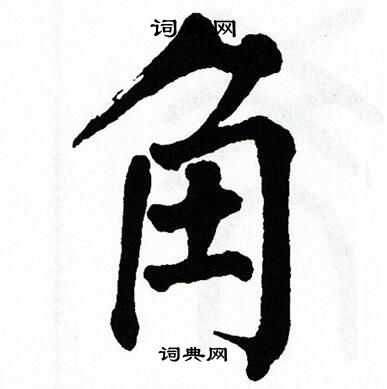 词网
角
词典网